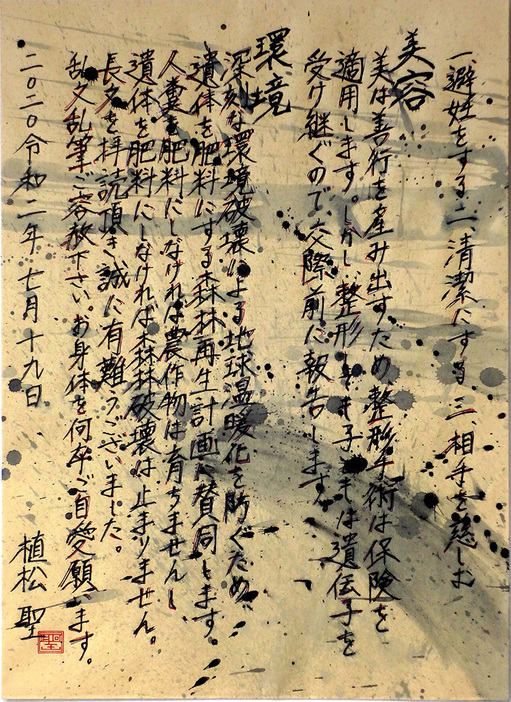 一、避妊をする 二、清潔にする 三、相手を慈しむ
美容
美は善行を産み出すため整形手術は保険を
適用します。しかし、整形しても子どもは遺伝子を
受け継ぐので交際前に報告します。
環境
深刻な環境破壊による地球温暖化を防ぐため、
遺体を肥料にする森林再生計画に賛同します。
人糞を肥料にしなければ農作物は育ちませんし
遺体を肥料にしなければ森林破壊は止まりません。
長文を拝読頂き誠に有難うございました。
乱文乱筆ご容赦下さい。お身体を何卒ご自愛願います。
二〇二〇令和二年七月十九日
植松 聖
聖